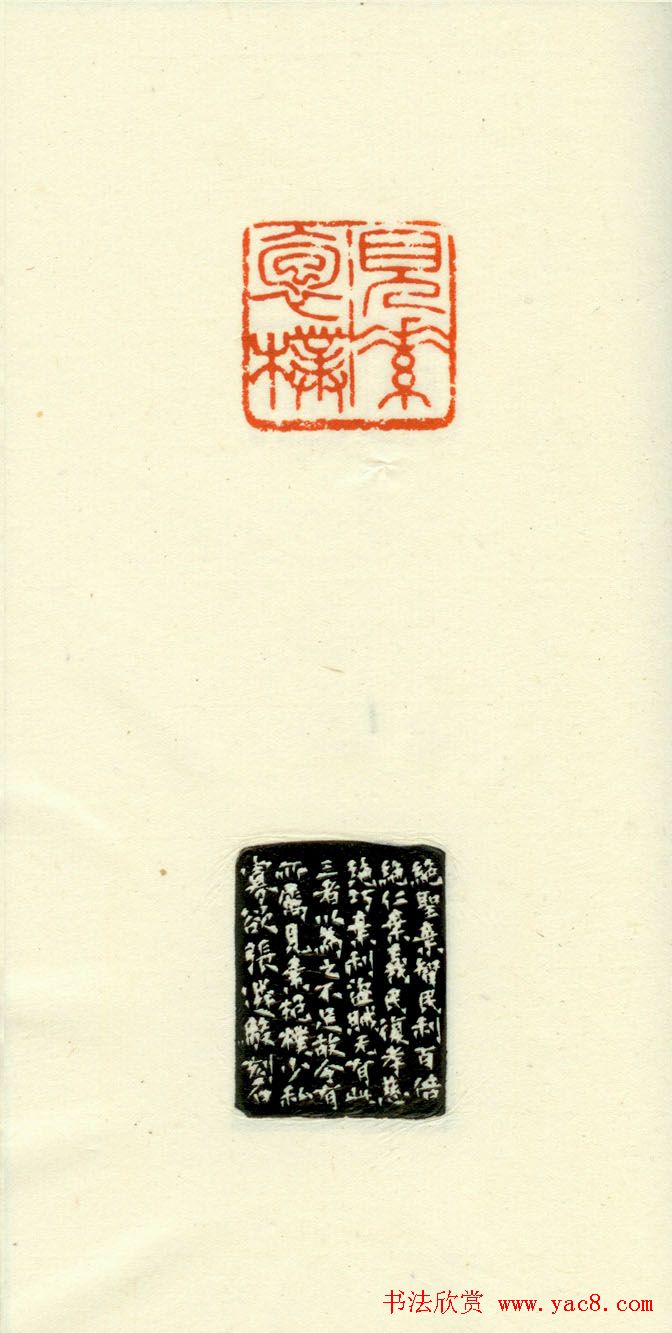 見素
袌樸
絕聖棄智民利百倍
絕仁棄義民復孝慈
絕巧棄利盜賊无有此
三者以爲之不足故令有
所屬見素抱樸少私
寡欲張遴駿刻石
书法欣赏 www.yac8.com